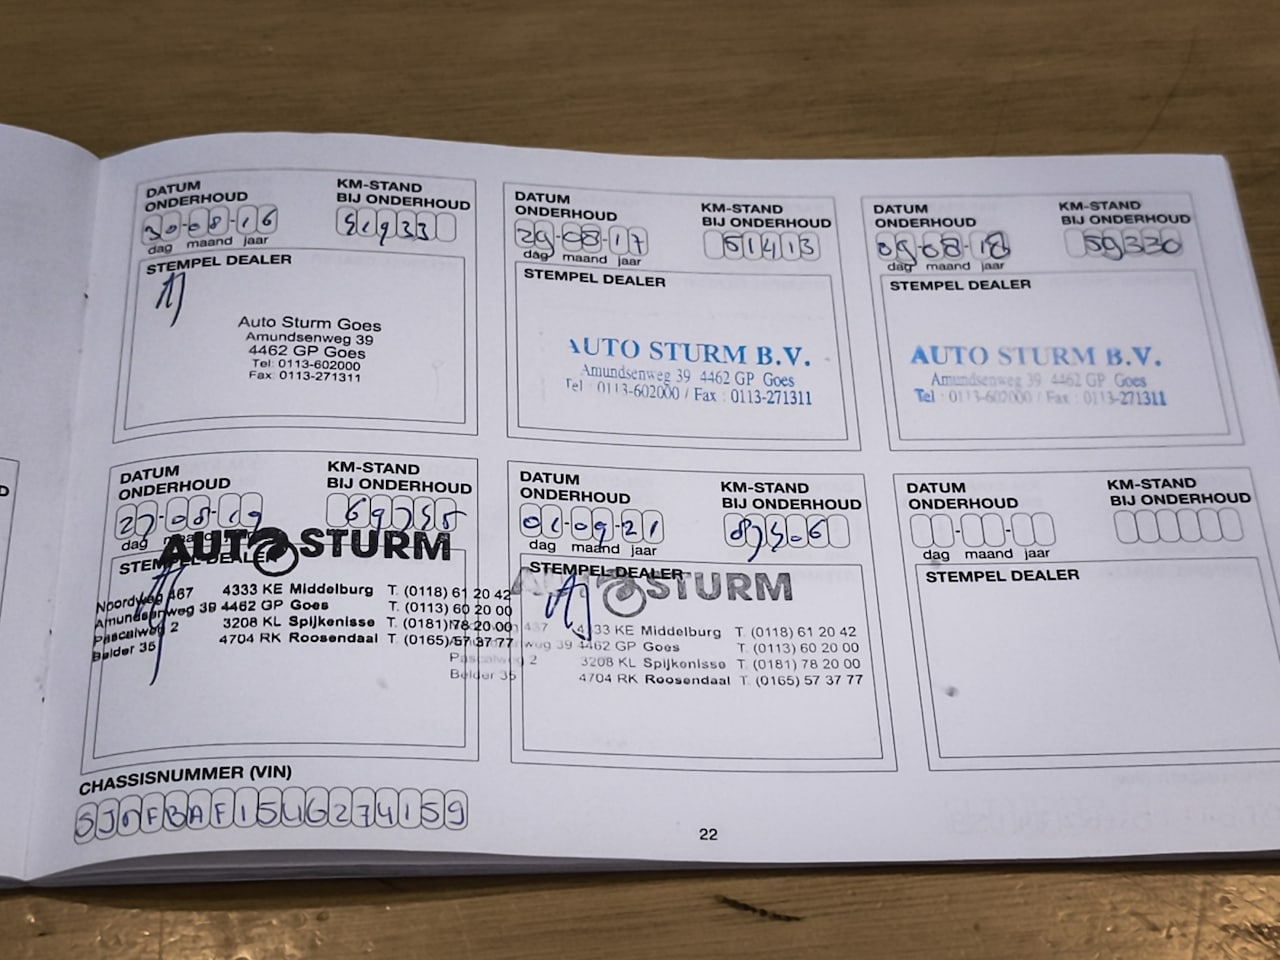 DATUM
ONDERHOUD
30-08-16
dag maand jaar
KM-STAND
BIJ ONDERHOUD
51933
STEMPEL DEALER
Auto Sturm Goes
Amundsenweg 39
4462 GP Goes
Tel: 0113-602000
Fax: 0113-271311
DATUM
ONDERHOUD
29-08-17
dag maand jaar
KM-STAND
BIJ ONDERHOUD
51413
STEMPEL DEALER
AUTO STURM B.V.
Amundsenweg 39 4462 GP Goes
Tel : 0113-602000 / Fax : 0113-271311
DATUM
ONDERHOUD
09-08-18
dag maand jaar
KM-STAND
BIJ ONDERHOUD
59330
STEMPEL DEALER
AUTO STURM B.V.
Amundsenweg 39 4462 GP Goes
Tel : 0113-602000 / Fax : 0113-271311
DATUM
ONDERHOUD
27-08-19
dag maand jaar
KM-STAND
BIJ ONDERHOUD
69755
STEMPEL DEALER
AUTO STURM
Noordweg 467 4333 KE Middelburg T. (0118) 61 20 42
Amundsenweg 39 4462 GP Goes T. (0113) 60 20 00
Pascalweg 2 3208 KL Spijkenisse T. (0181) 78 20 00
Belder 35 4704 RK Roosendaal T. (0165) 57 37 77
DATUM
ONDERHOUD
01-09-21
dag maand jaar
KM-STAND
BIJ ONDERHOUD
STEMPEL DEALER
AUTO STURM
437 4333 KE Middelburg T. (0118) 61 20 42
39 4462 GP Goes T. (0113) 60 20 00
Pascalweg 2 3208 KL Spijkenisse T. (0181) 78 20 00
Belder 35 4704 RK Roosendaal T. (0165) 57 37 77
DATUM
ONDERHOUD
dag maand jaar
KM-STAND
BIJ ONDERHOUD
STEMPEL DEALER
CHASSISNUMMER (VIN)
SJNFBAF15U6274159
22